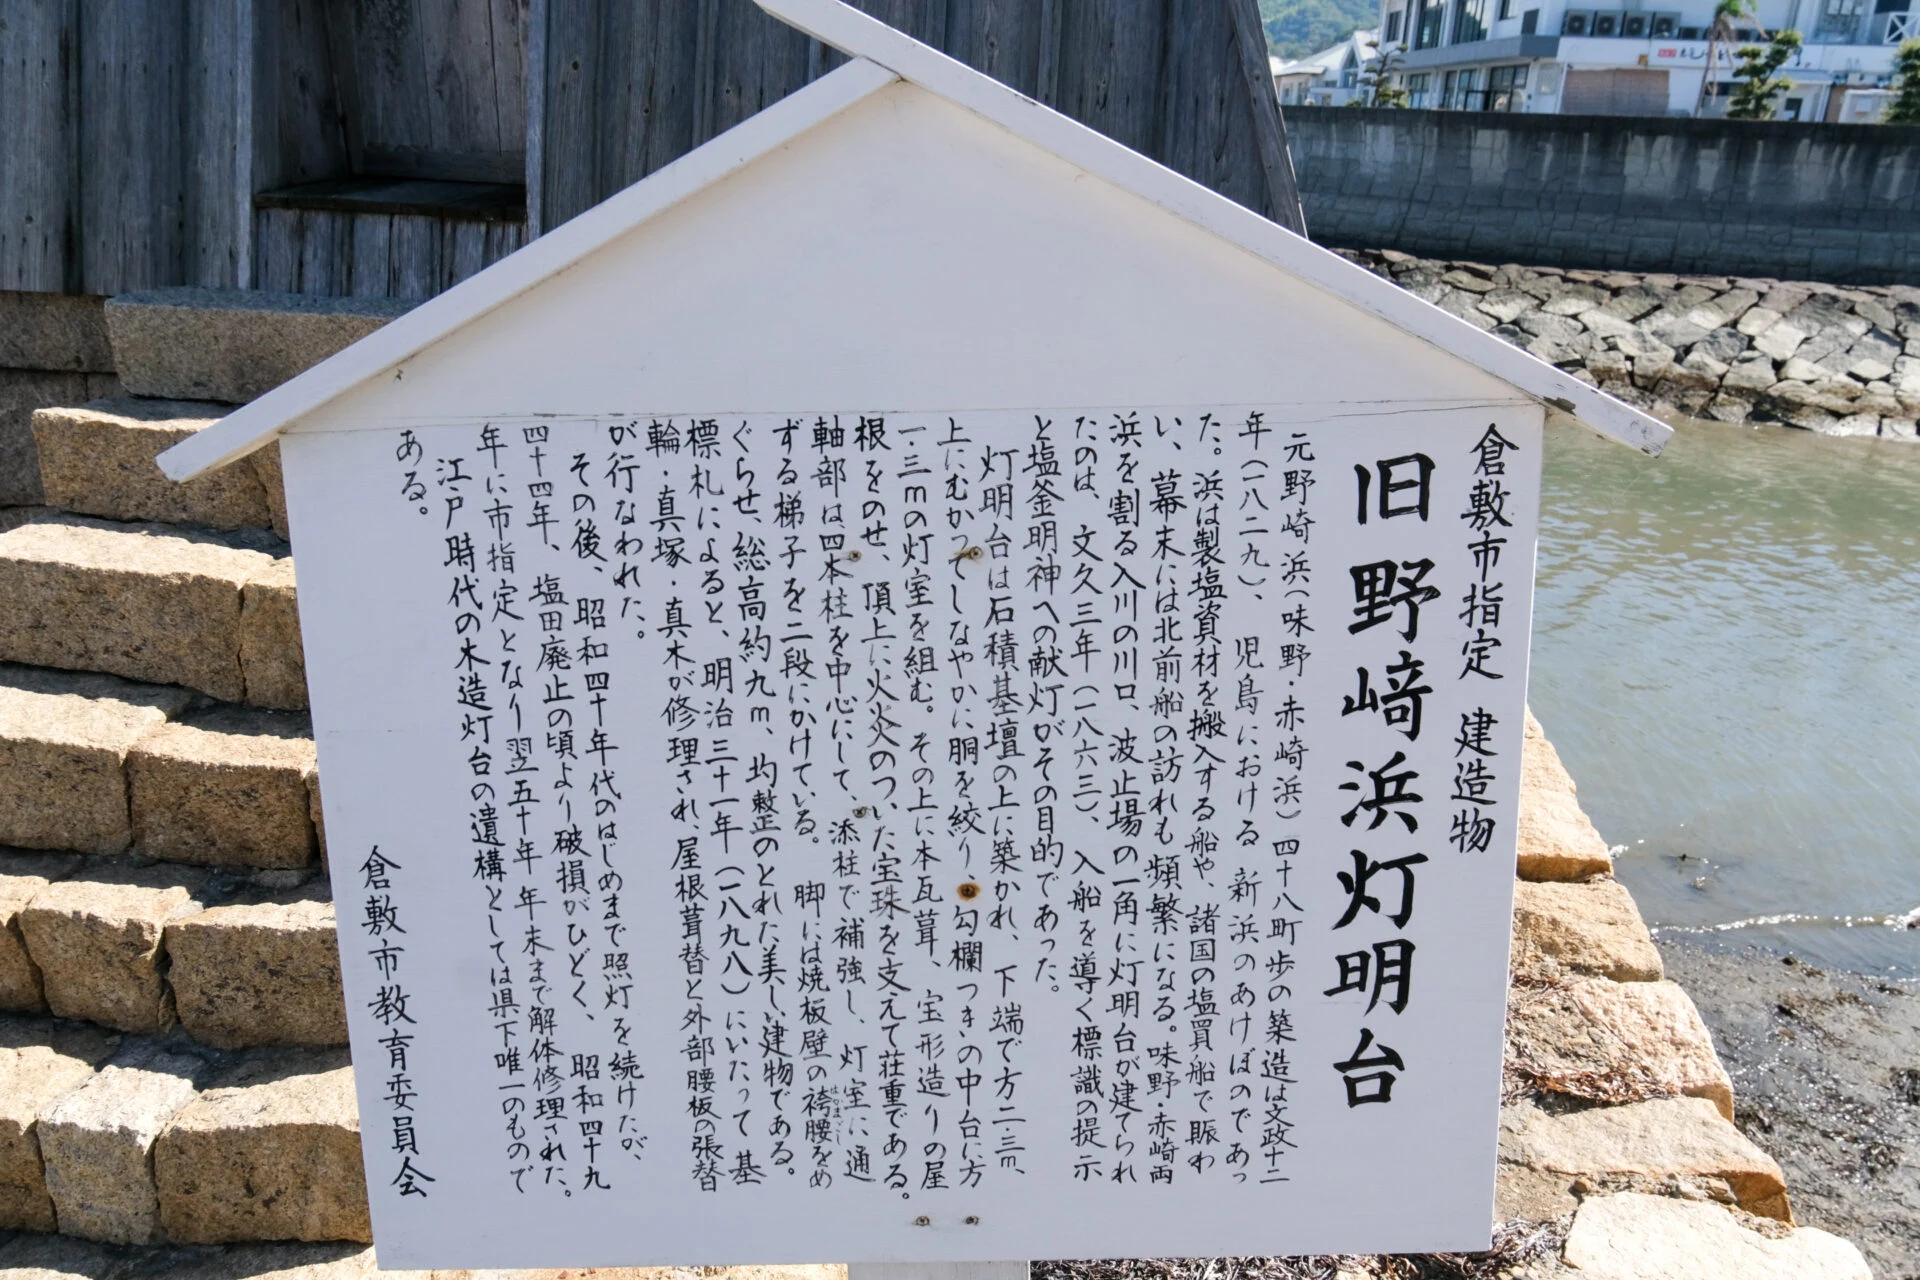 倉敷市指定 建造物
旧野﨑浜灯明台
元野崎浜(味野・赤崎浜)四十八町歩の築造は文政十二
年(一八二九)、児島における新浜のあけぼのであっ
た。浜は製塩資材を搬入する船や、諸国の塩買船で賑わ
い、幕末には北前船の訪れも頻繁になる。味野・赤崎両
浜を割る入川の川口、波止場の一角に灯明台が建てられ
たのは、文久三年(一八六三)、入船を導く標識の提示
と塩釜明神への献灯がその目的であった。
灯明台は石積基壇の上に築かれ、下端で方二・三m、
上にむかってしなやかに胴を絞り、勾欄つきの中台に方
一・三mの灯室を組む。その上に本瓦葺、宝形造りの屋
根をのせ、頂上に火炎のついた宝珠を支えて荘重である。
軸部は四本柱を中心にして、添柱で補強し、灯室に通
ずる梯子を二段にかけている。脚には焼板壁の袴腰をめ
はかまごし
ぐらせ、総高約九m、均整のとれた美しい建物である。
標札によると、明治三十一年(一八九八)にいたって基
輪・真塚・真木が修理され、屋根葺替と外部腰板の張替
が行なわれた。
その後、昭和四十年代のはじめまで照灯を続けたが、
四十四年、塩田廃止の頃より破損がひどく、昭和四十九
年に市指定となり翌五十年年末まで解体修理された。
江戸時代の木造灯台の遺構としては県下唯一のもので
ある。
倉敷市教育委員会